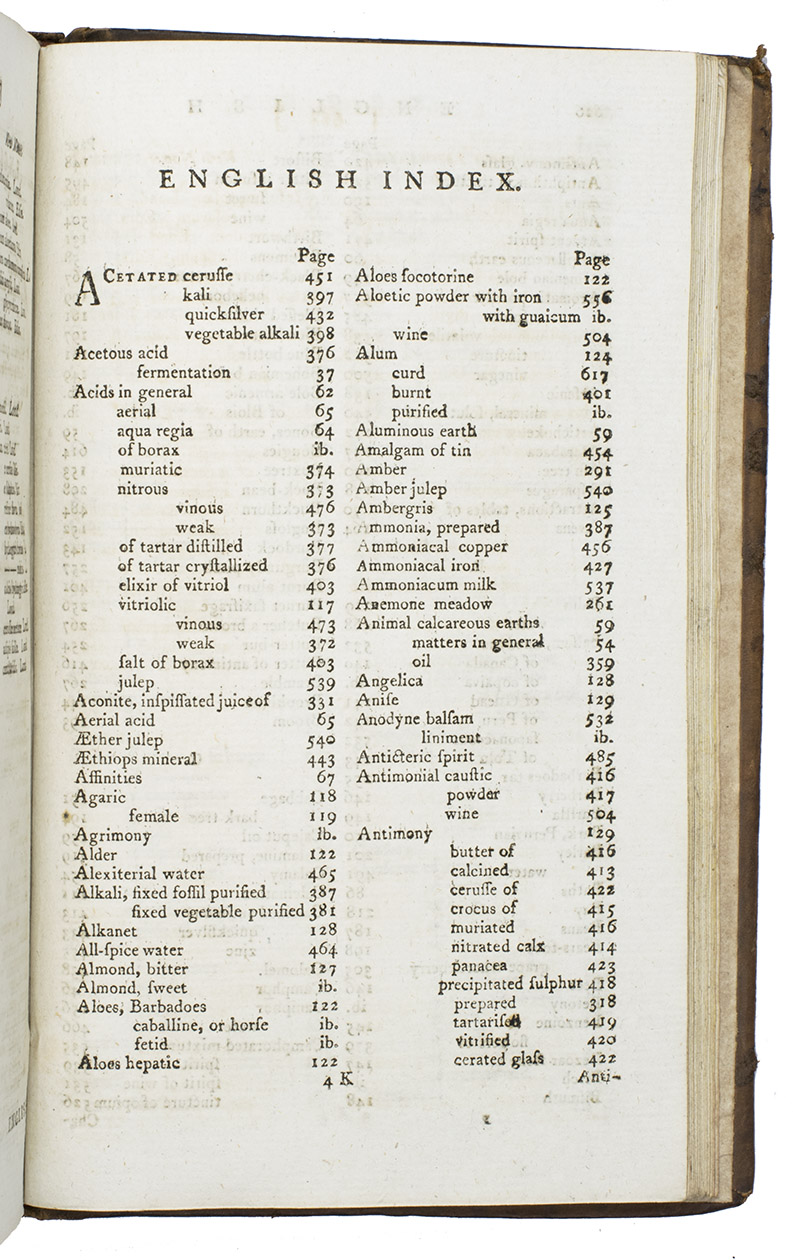 ENGLISH INDEX.
Page
ACETATED ceruſſe 451
kali 397
quickſilver 432
vegetable alkali 398
Acetous acid 376
fermentation 37
Acids in general 62
aerial 65
aqua regia 64
of borax ib.
muriatic 374
nitrous 373
vinous 476
weak 373
of tartar diſtilled 377
of tartar cryſtallized 376
elixir of vitriol 403
vitriolic 117
vinous 473
weak 372
ſalt of borax 403
julep 539
Aconite, inſpiſſated juice of 331
Aerial acid 65
Æther julep 540
Æthiops mineral 443
Affinities 67
Agaric 118
female 119
Agrimony ib.
Alder 122
Alexiterial water 465
Alkali, fixed foſſil purified 387
fixed vegetable purified 381
Alkanet 128
All-ſpice water 464
Almond, bitter 127
Almond, ſweet ib.
Aloes, Barbadoes 122
caballine, or horſe ib.
fetid ib.
Aloes hepatic 122
4 K
Page
Aloes ſocotorine 122
Aloetic powder with iron 556
with guaicum ib.
wine 504
Alum 124
curd 617
burnt 401
purified ib.
Aluminous earth 59
Amalgam of tin 454
Amber 291
Amber julep 540
Ambergris 125
Ammonia, prepared 387
Ammoniacal copper 456
Ammoniacal iron 427
Ammoniacum milk 537
Anemone meadow 261
Animal calcareous earths 59
matters in general 54
oil 359
Angelica 128
Aniſe 129
Anodyne balſam 532
liniment ib.
Anticteric ſpirit 485
Antimonial cauſtic 416
powder 417
wine 504
Antimony 129
butter of 416
calcined 413
ceruſſe of 422
crocus of 415
muriated 416
nitrated calx 414
panacea 423
precipitated ſulphur 418
prepared 318
tartariſed 419
vitrified 420
cerated glaſs 422
Anti-